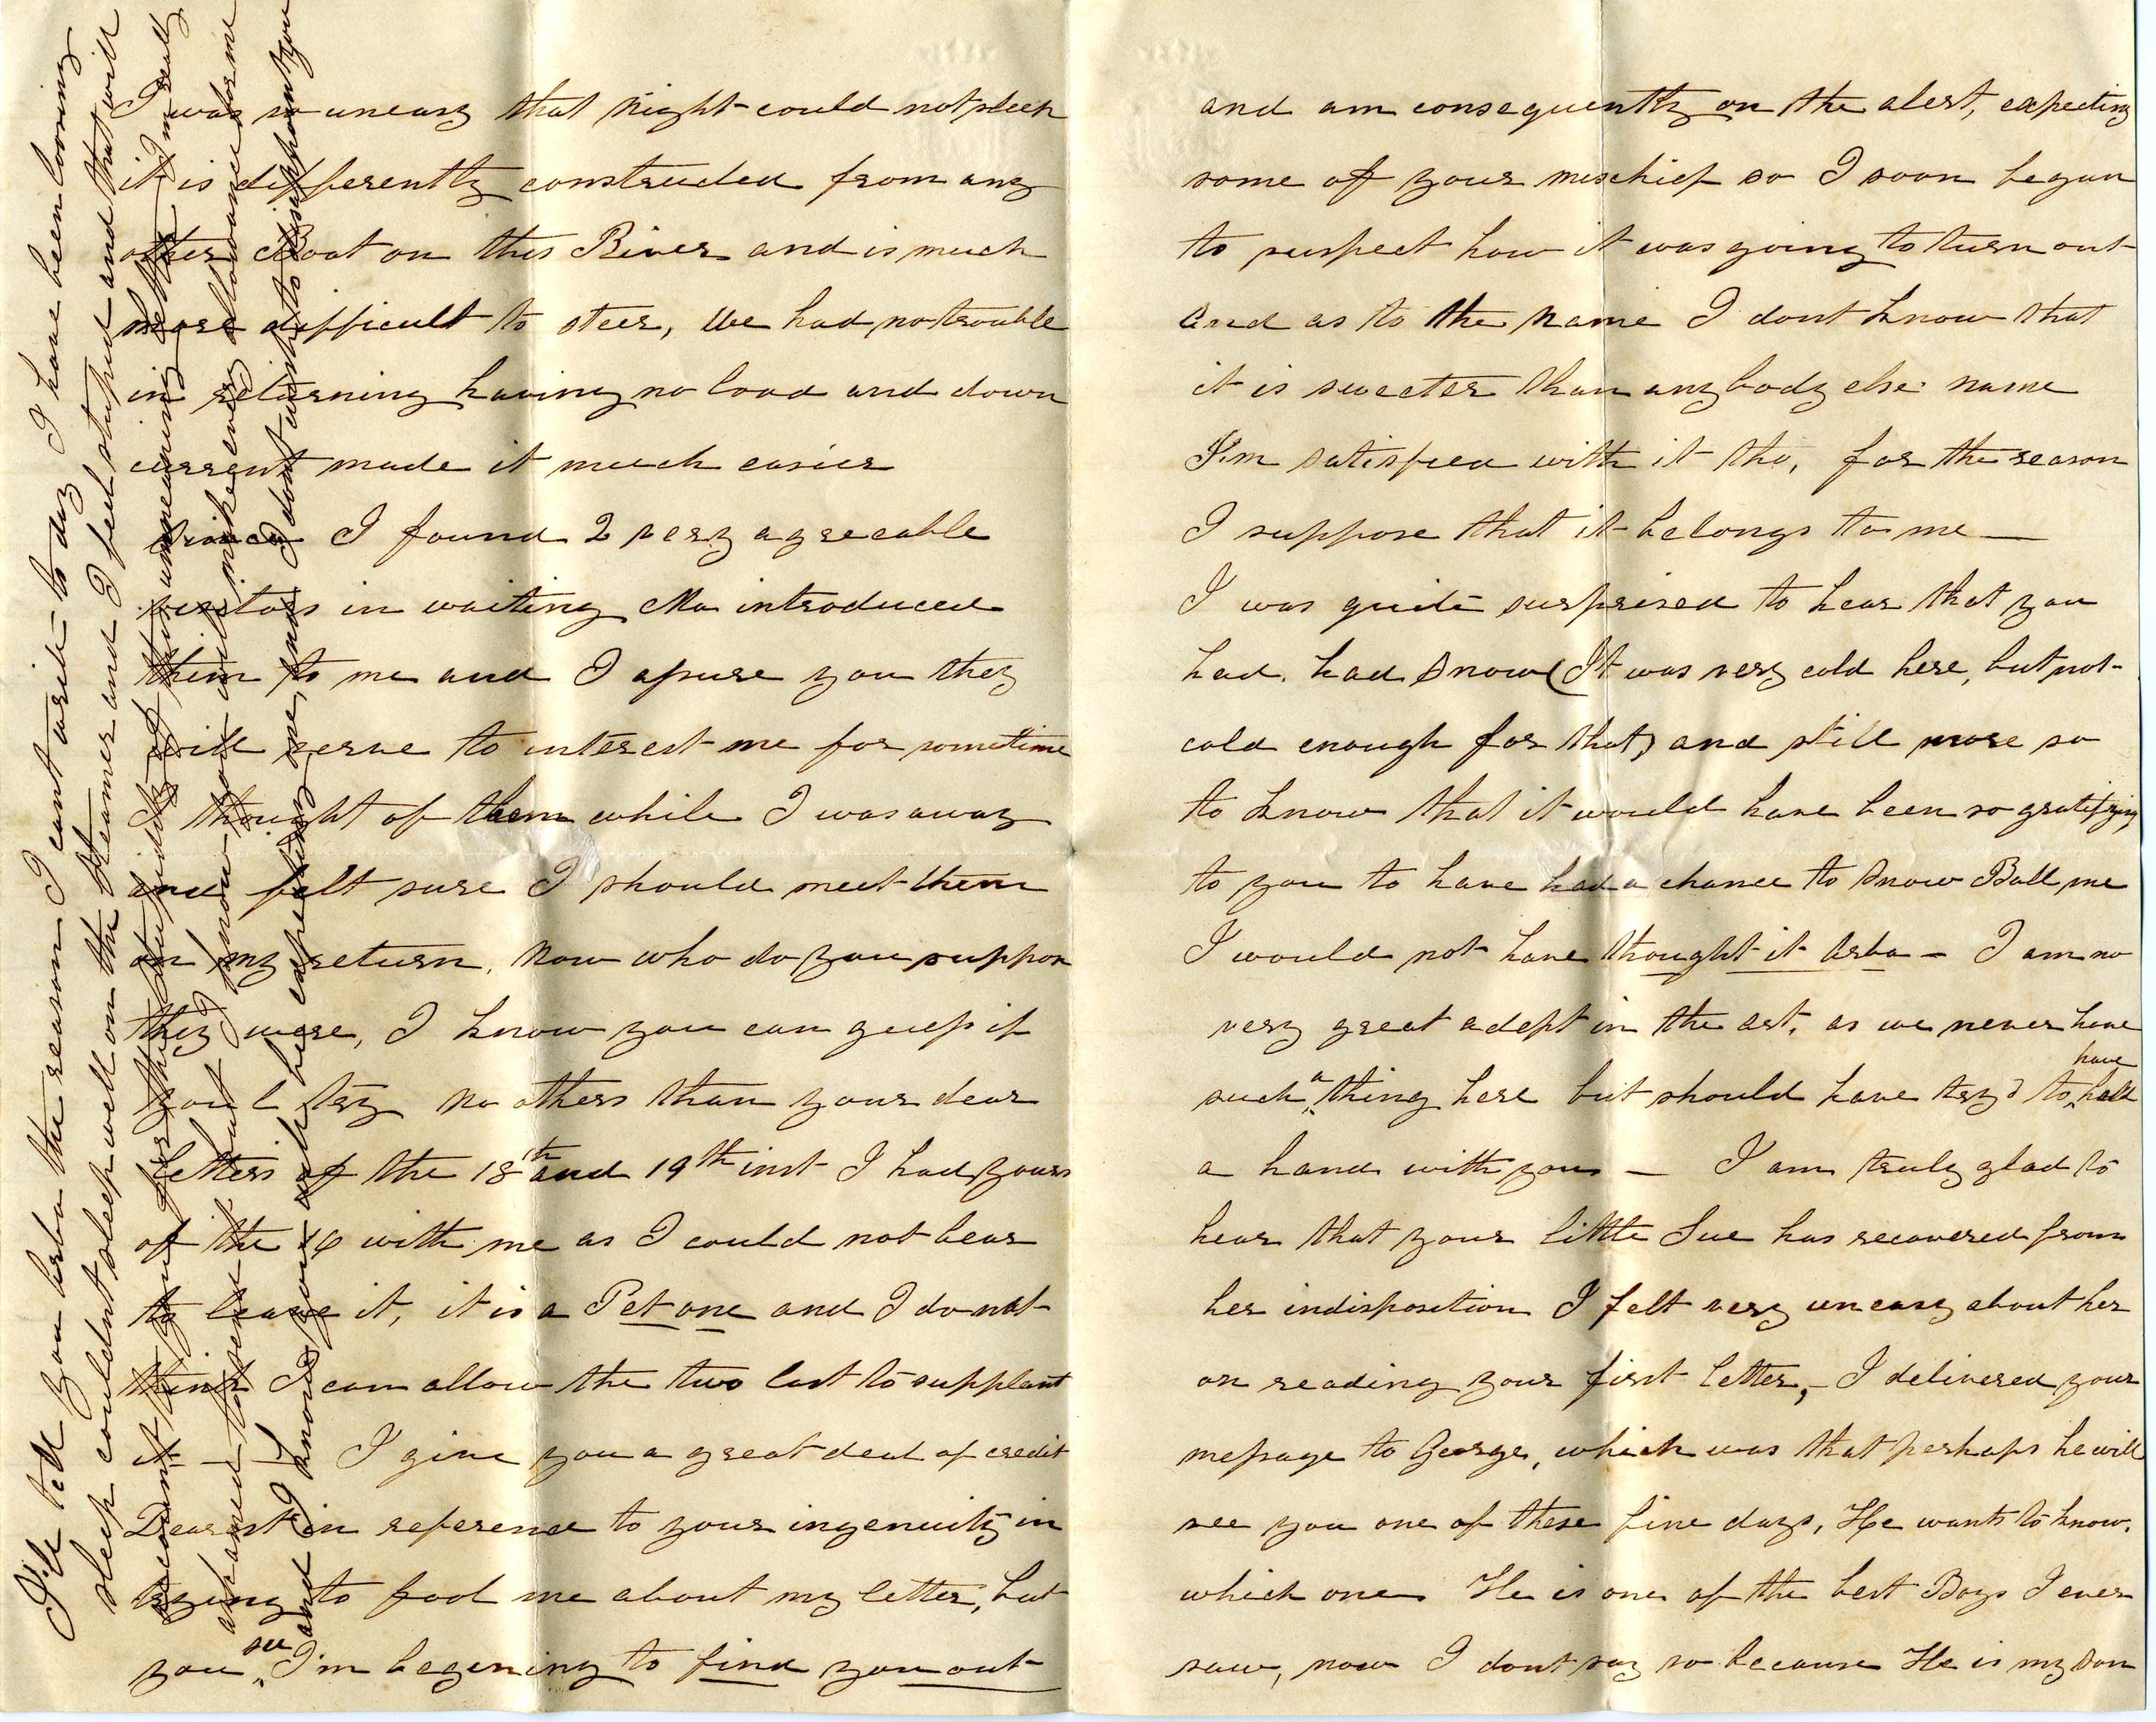 I was so uneasy that night could not sleep
it is differently constructed from any
other Boat on this River and is much
more difficult to steer, We had no trouble
in returning having no load and down
current made it much easier
I found 2 very agreeable
visitors in waiting Ma introduced
them to me and I assure you they
will serve to interest me for sometime
I thought of them while I was away
and felt sure I should meet them
on my return, Now who do you suppose
they were, I know you can guess if
you'l try no others than your dear
letters of the 18th and 19th inst I had yours
of the 16 with me as I could not bear
to leave it, it is a Pet one and I do not
think I can allow the two last to supplant
it — I give you a great deal of credit
Dearest in reference to your ingenuity in
trying to fool me about my letter, but
you see I'm begening to find you out
I'le tell you Arba the reason I cant write to day I have been loosing
sleep couldnt sleep well on the Steamer and I feel stupid and that will
account to you for the stupidity of this unmeaning letter, I'm really
ashamed to send it but I know you will make every allowance for me
and I know you will be expecting one, and I dont wish to disappoint you
and am consequently on the alert, expecting
some of your mischief so I soon began
to suspect how it was going to turn out
and as to the name I dont know that
it is sweeter than any body else' name
I'm satisfied with it tho, for the reason
I suppose that it belongs to me —
I was quite surprised to hear that you
had. had Snow (It was very cold here, but not
cold enough for that) and still more so
to know that it would have been so gratifying
to you to have had a chance to Snow Ball me
I would not have thought it Arba — I am no
very great adept in the art, as we never have
such a thing here but should have try'd to have
a hand with you — I am truly glad to
hear that your little Sue has recovered from
her indisposition I felt very uneasy about her
on reading your first letter, — I delivered your
message to George, which was that perhaps he will
see you one of these fine days, He wants to know.
which one. He is one of the best Boys I ever
saw, now I dont say so because He is my Son